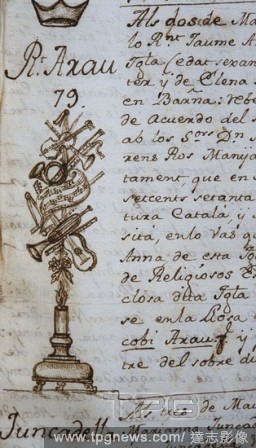 Rt. Arau
79.
Als dos de Ma
lo Rnt. Jaume A
Igla (edat sexan
ter y de Elena
en Barña: rebé
de acuerdo del s
ab los Sors. Dn
rens Ros Manija
tament, que en
setcents setanta
tura Catalá, y
sita, en lo Vas q
Anna de esta Ig
de Religiosos
closa dita Igla
se en la Llosa
cobi Arau, y
tre del sobre di
Juncadell
Als tres de Mau
Marianna Juncad
TPG
www.tpgnews.com/達志影像